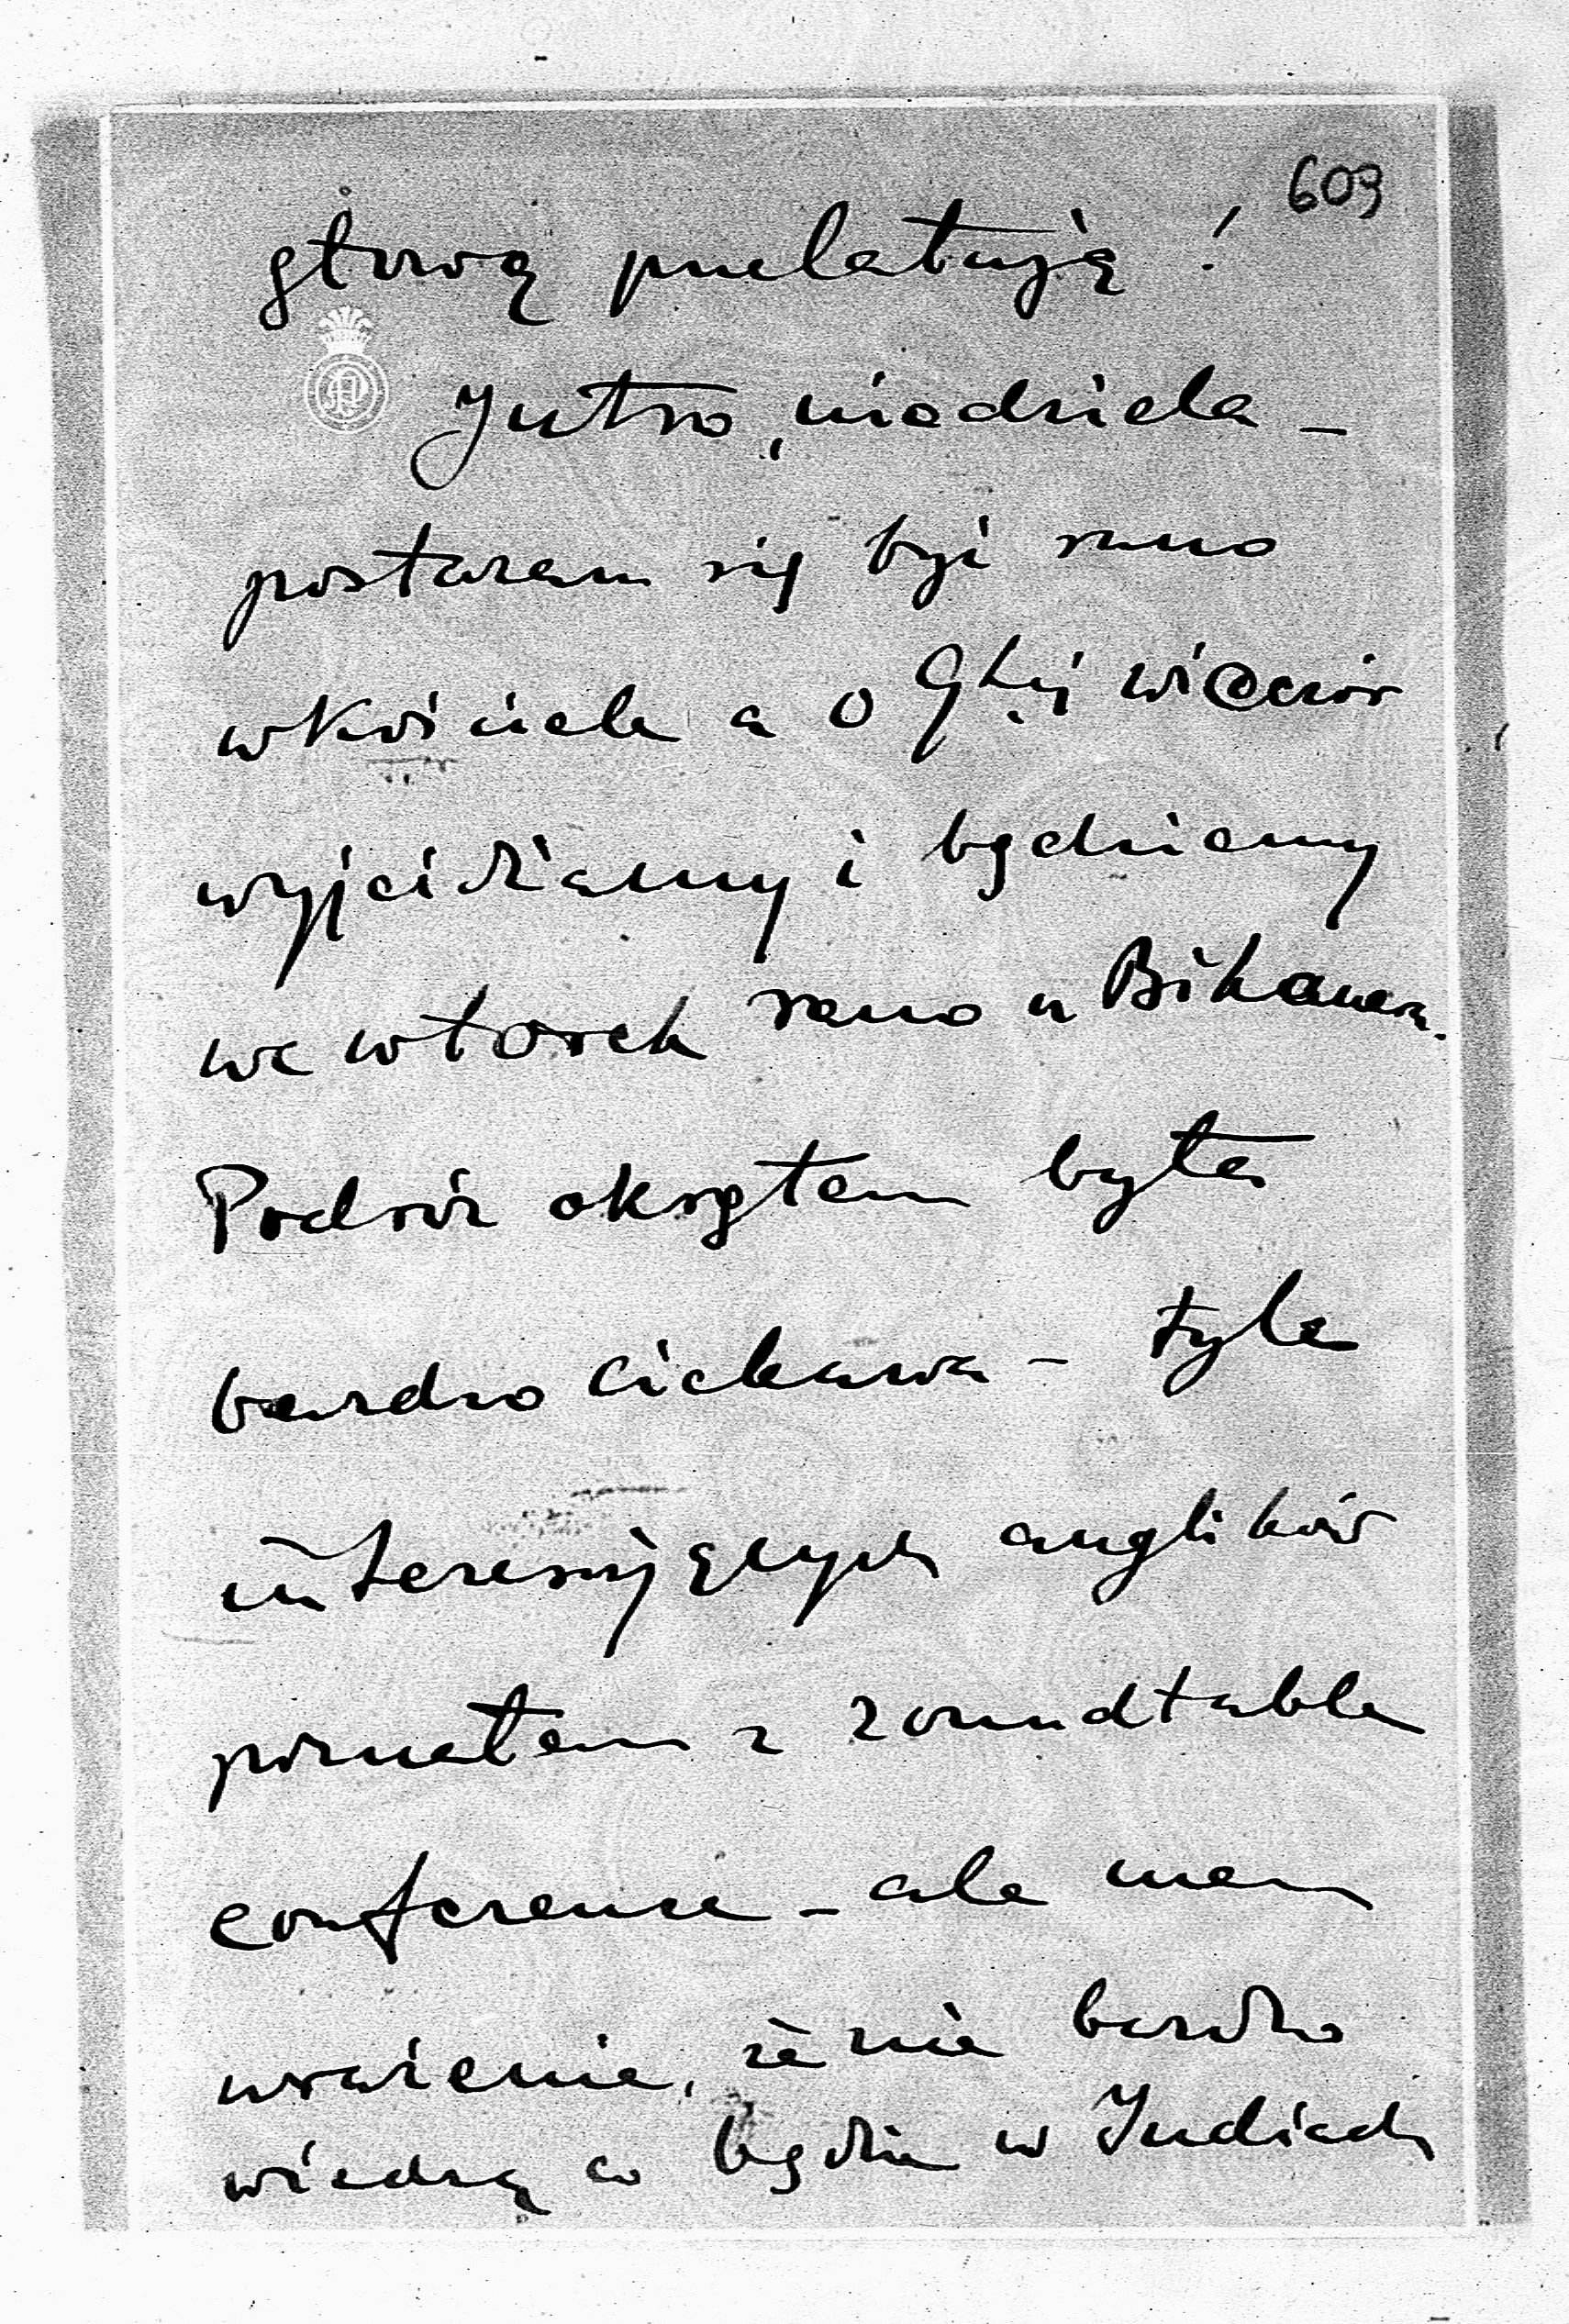 603
głową przelatują!
Jutro, niedziela -
postaram się być rano
w kościele a o 9tej wieczór
wyjeżdżamy i będziemy
we wtorek rano u Bikanera.
Podróż okrętem była
bardzo ciekawa - tyle
interesujących anglików
poznałem z roundtable
conference - ale mam
wrażenie, że nie bardzo
wiedzą co będzie w Indiach